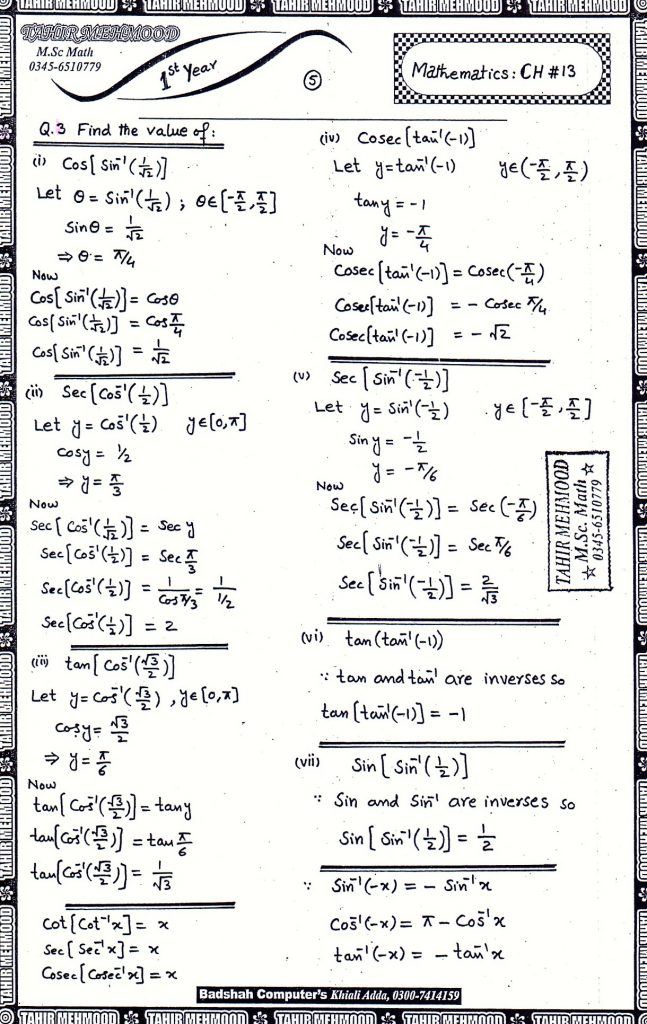 TAHIR MEHMOOD
M.Sc Math
0345-6510779
1st Year
5
Mathematics: CH #13
Q.3 Find the value of:
(i) Cos[Sin⁻¹(1/√2)]
Let θ = Sin⁻¹(1/√2) ; θ∈[-π/2, π/2]
Sinθ = 1/√2
⇒ θ = π/4
Now
Cos[Sin⁻¹(1/√2)] = Cosθ
Cos[Sin⁻¹(1/√2)] = Cos π/4
Cos[Sin⁻¹(1/√2)] = 1/√2
(ii) Sec[Cos⁻¹(1/2)]
Let y = Cos⁻¹(1/2) y∈[0,π]
Cosy = 1/2
⇒ y = π/3
Now
Sec[Cos⁻¹(1/√2)] = Sec y
Sec[Cos⁻¹(1/2)] = Sec π/3
Sec[Cos⁻¹(1/2)] = 1/Cos π/3 = 1/1/2
Sec[Cos⁻¹(1/2)] = 2
(iii) tan[Cos⁻¹(√3/2)]
Let y = Cos⁻¹(√3/2) , y∈[0,π]
Cosy = √3/2
⇒ y = π/6
Now
tan[Cos⁻¹(√3/2)] = tany
tan[Cos⁻¹(√3/2)] = tan π/6
tan[Cos⁻¹(√3/2)] = 1/√3
Cot[Cot⁻¹x] = x
Sec[Sec⁻¹x] = x
Cosec[Cosec⁻¹x] = x
(iv) Cosec[tan⁻¹(-1)]
Let y = tan⁻¹(-1) y∈(-π/2, π/2)
tany = -1
y = -π/4
Now
Cosec[tan⁻¹(-1)] = Cosec(-π/4)
Cosec[tan⁻¹(-1)] = - Cosec π/4
Cosec[tan⁻¹(-1)] = - √2
(v) Sec[Sin⁻¹(-1/2)]
Let y = Sin⁻¹(-1/2) y∈[-π/2, π/2]
Sin y = -1/2
y = -π/6
Now
Sec[Sin⁻¹(-1/2)] = Sec(-π/6)
Sec[Sin⁻¹(-1/2)] = Sec π/6
Sec[Sin⁻¹(-1/2)] = 2/√3
TAHIR MEHMOOD
☆ M.Sc. Math ☆
☆ 0345-6510779
(vi) tan(tan⁻¹(-1))
∵ tan and tan⁻¹ are inverses so
tan[tan⁻¹(-1)] = -1
(vii) Sin[Sin⁻¹(1/2)]
∵ Sin and Sin⁻¹ are inverses so
Sin[Sin⁻¹(1/2)] = 1/2
∵ Sin⁻¹(-x) = - Sin⁻¹x
Cos⁻¹(-x) = π - Cos⁻¹x
tan⁻¹(-x) = - tan⁻¹x
Badshah Computer's Khiali Adda, 0300-7414159